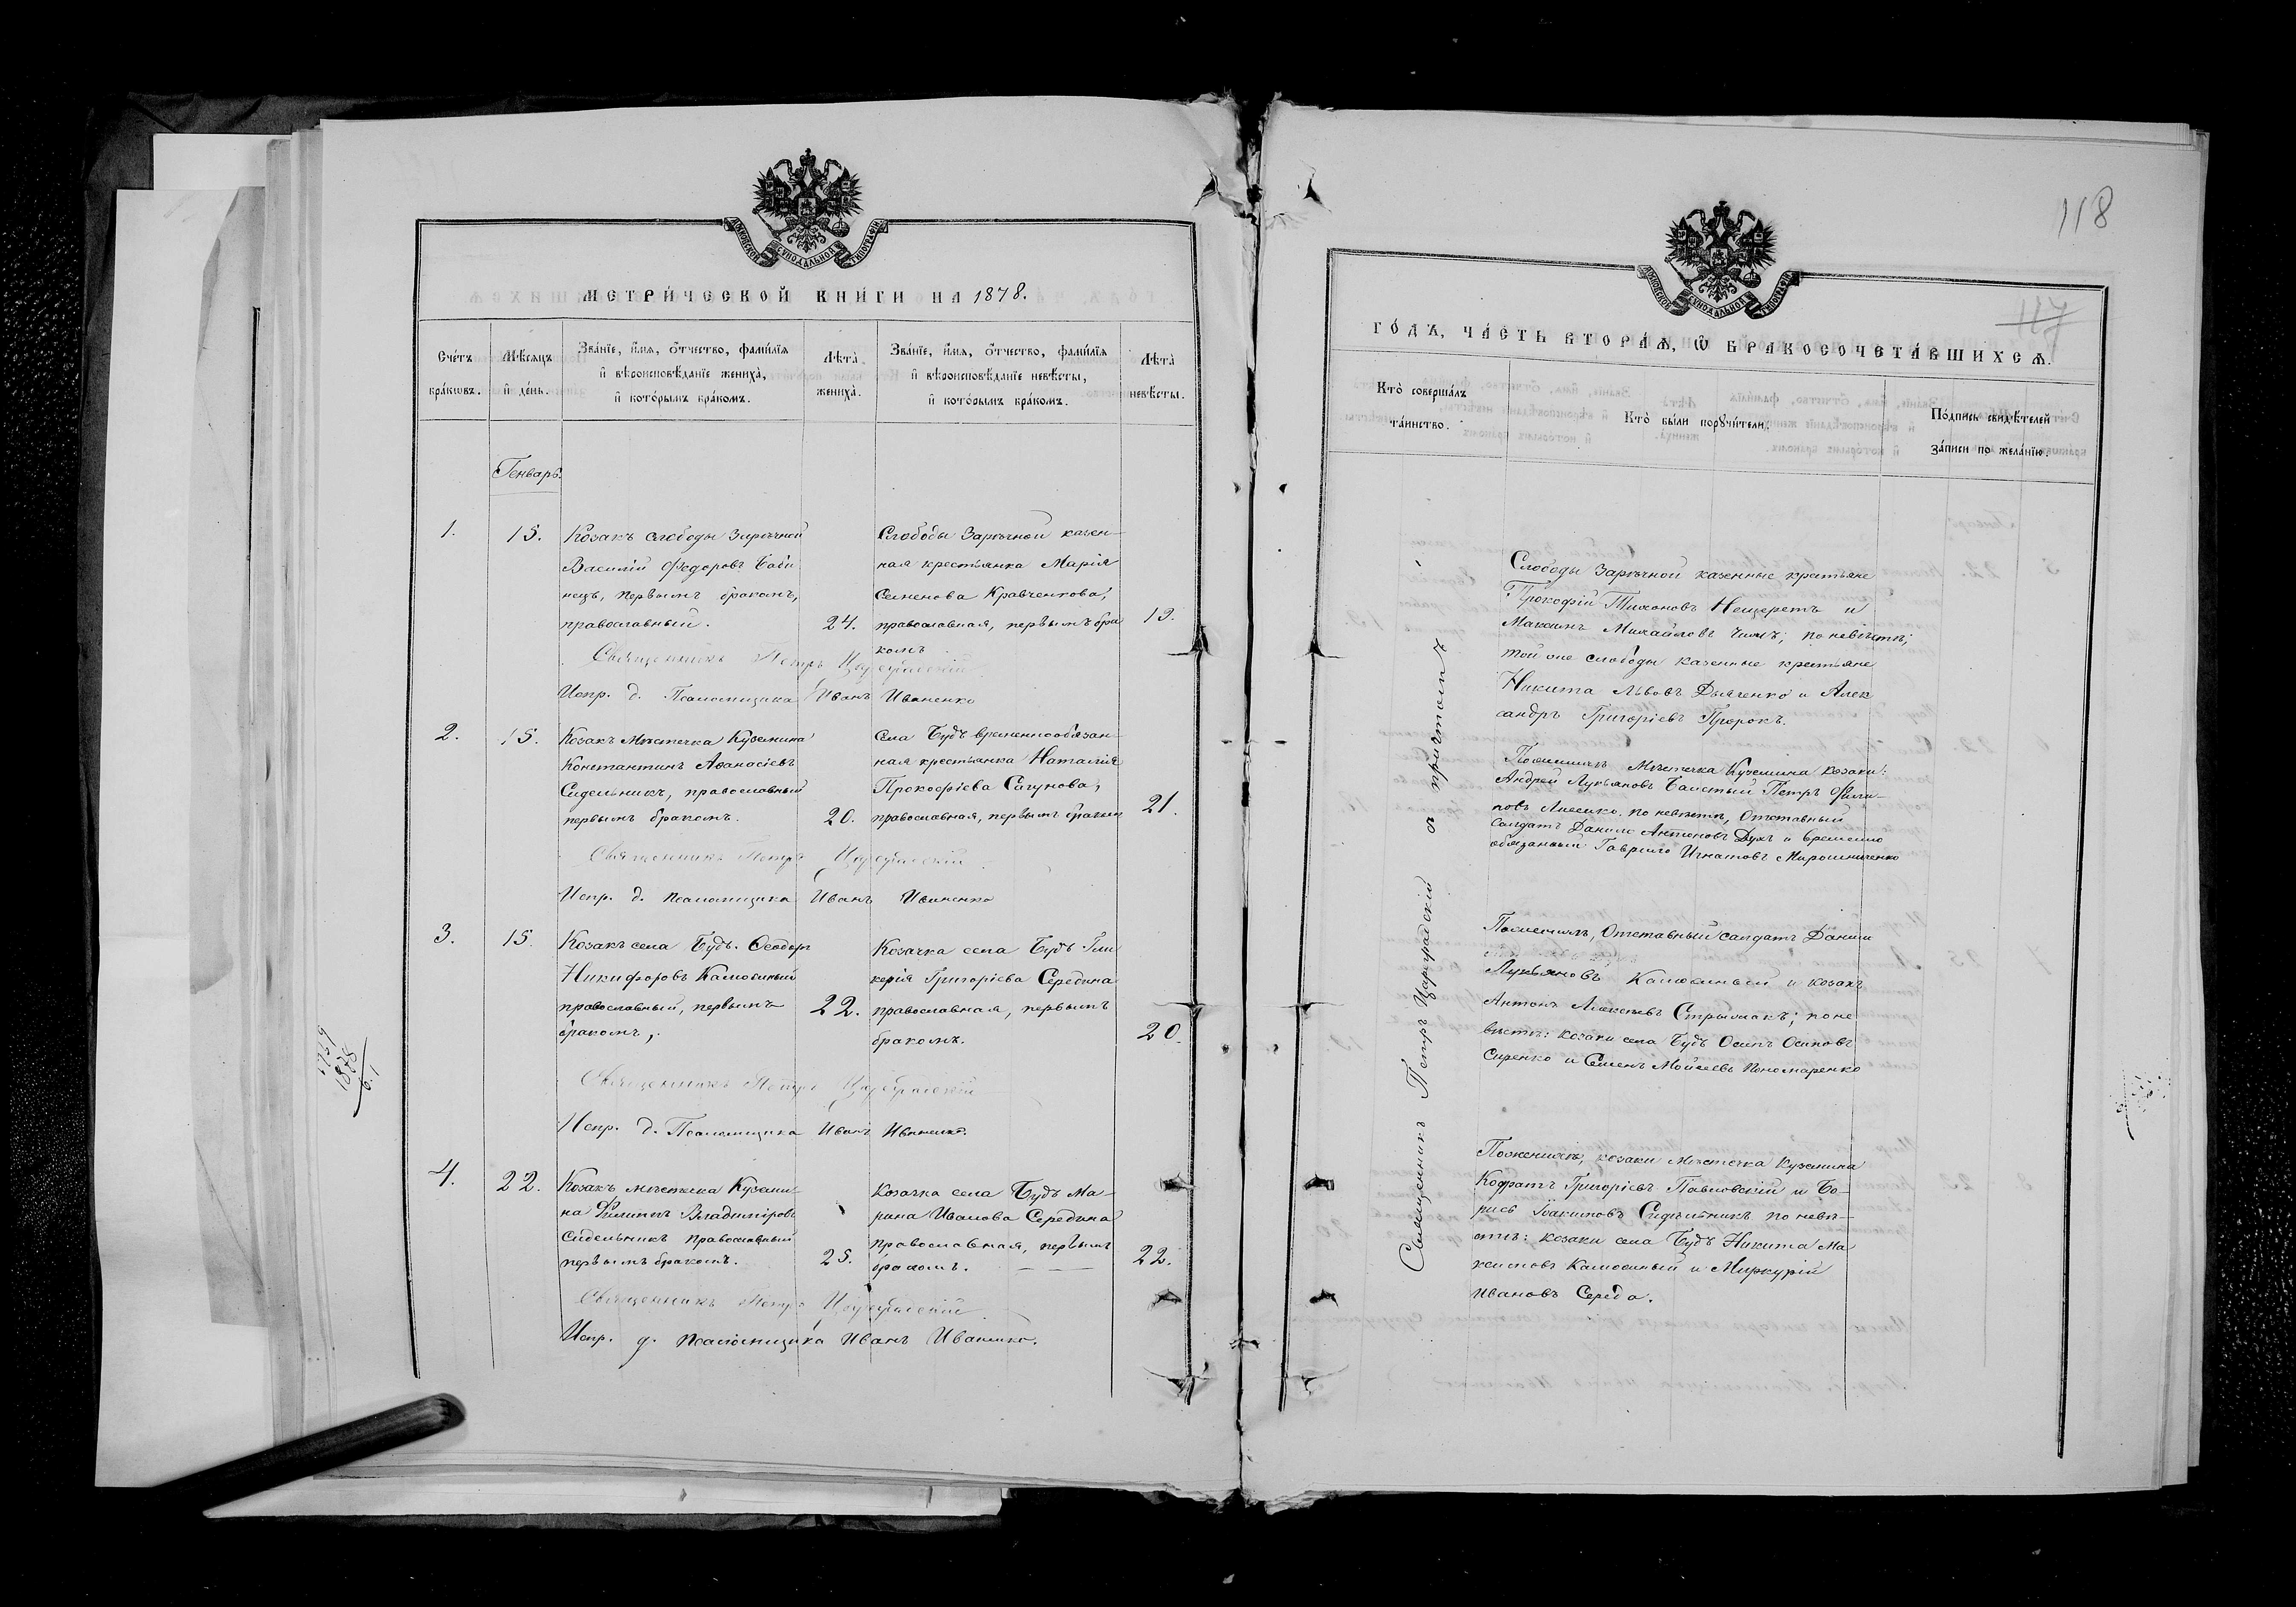 МОСКОВСКОЙ СѴНОДАЛЬНОЙ ТИПОГРАФІИ
МЕТРИ́ЧЕСКОЙ КНИ́ГИ НА 1878.
Сче́тъ бра́кѡвъ.
Мѣ́сяцъ и҆ де́нь.
Зва́нїе, и҆́мя, ѻ҆́тчество, фамилїѧ и҆ вѣроисповѣ́данїе жениха̀, и҆ кото́рымъ бра́комъ.
Лѣ́та жениха̀.
Зва́нїе, и҆́мя, ѻ҆́тчество, фамилїѧ и҆ вѣроисповѣ́данїе невѣ́сты, и҆ кото́рымъ бра́комъ.
Лѣ́та невѣ́сты.
Генварь.
1.
15.
Козакъ слободы Зарѣчной
Василій Ѳедоровъ Баби
нецъ, первымъ бракомъ,
православный.
24.
Слободы Зарѣчной казен-
ная крестьянка Марія
Семенова Кравченкова,
православная, первымъ бра
комъ
19.
Священникъ Петръ Цареградскій
Испр. д. Псаломщика Иванъ Иваненко
2.
15.
Козакъ мѣстечка Куземина
Константинъ Аѳанасіевъ
Сидельникъ, православный
первымъ бракомъ.
20.
Села Будъ временнообязан-
ная крестьянка Наталія
Прокофіева Сигунова,
православная, первымъ бракомъ
21.
Священникъ Петръ Цареградскій
Испр. д. псаломщика Иванъ Иваненко
3.
15.
Козакъ села Будъ. Ѳеодоръ
Никифоровъ Калюсиный
православный, первымъ
бракомъ,
22.
Козачка села Будъ Гли
керія Григоріева Середина
православная, первымъ
бракомъ.
20.
Священникъ Петръ Цареградскій
Испр. д. Псаломщика Иванъ Иваненко.
4.
22.
Козакъ мѣстечка Куземи-
на Филиппъ Владиміровъ
Сидельникъ православный
первымъ бракомъ.
25.
Козачка села Будъ Ма-
рина Иванова Середина
православная, первымъ
бракомъ.
22.
Священникъ Петръ Цареградскій
Испр. д. псаломщика Иванъ Иваненко.
1878
118
117
МОСКОВСКОЙ СѴНОДАЛЬНОЙ ТИПОГРАФІИ
ГО́ДЪ, ЧА́СТЬ ВТОРА́Ѧ, Ѡ҆ БРАКОСОЧЕТА́ВШИХСѦ.
Кто̀ соверша́лъ та́инство.
Кто̀ бы́ли поручи́тели.
По́дпись свидѣ́телей за́писи по жела́нїю.
Священникъ Петръ Цареградскій съ причтомъ
Слободы Зарѣчной казенные крестьяне
Прокофій Тихоновъ Нещеретъ и
Максимъ Михайловъ Чижъ; по невѣстѣ;
той же слободы казенные крестьяне
Никита Львовъ Дьяченко и Алек
сандръ Григоріевъ Пророкъ.
По женихѣ мѣстечка Куземина козаки:
Андрей Лукьяновъ Петръ Фили-
повъ Лисенко. по невѣстѣ, Отставный
солдатъ Данило Антоновъ Духъ и временно
обязанный Гаврило Игнатовъ Мирошниченко
По женихѣ, Отставный солдатъ Даніилъ
Лукьяновъ Калюсиный и козакъ
Антонъ Алексѣевъ Стрыжакъ; по не
вѣстѣ: козаки села Будъ Осипъ Осиповъ
Сиренко и Семенъ Мойсеевъ Пономаренко
По женихѣ, козаки мѣстечка Куземина
Кодратъ Григоріевъ Павловскій и Бо-
рисъ Іоакимовъ Сидѣльникъ по невѣ-
стѣ: козаки села Будъ Никита Ма
ксимовъ Калюсиный и Меркурій
Ивановъ Середа.